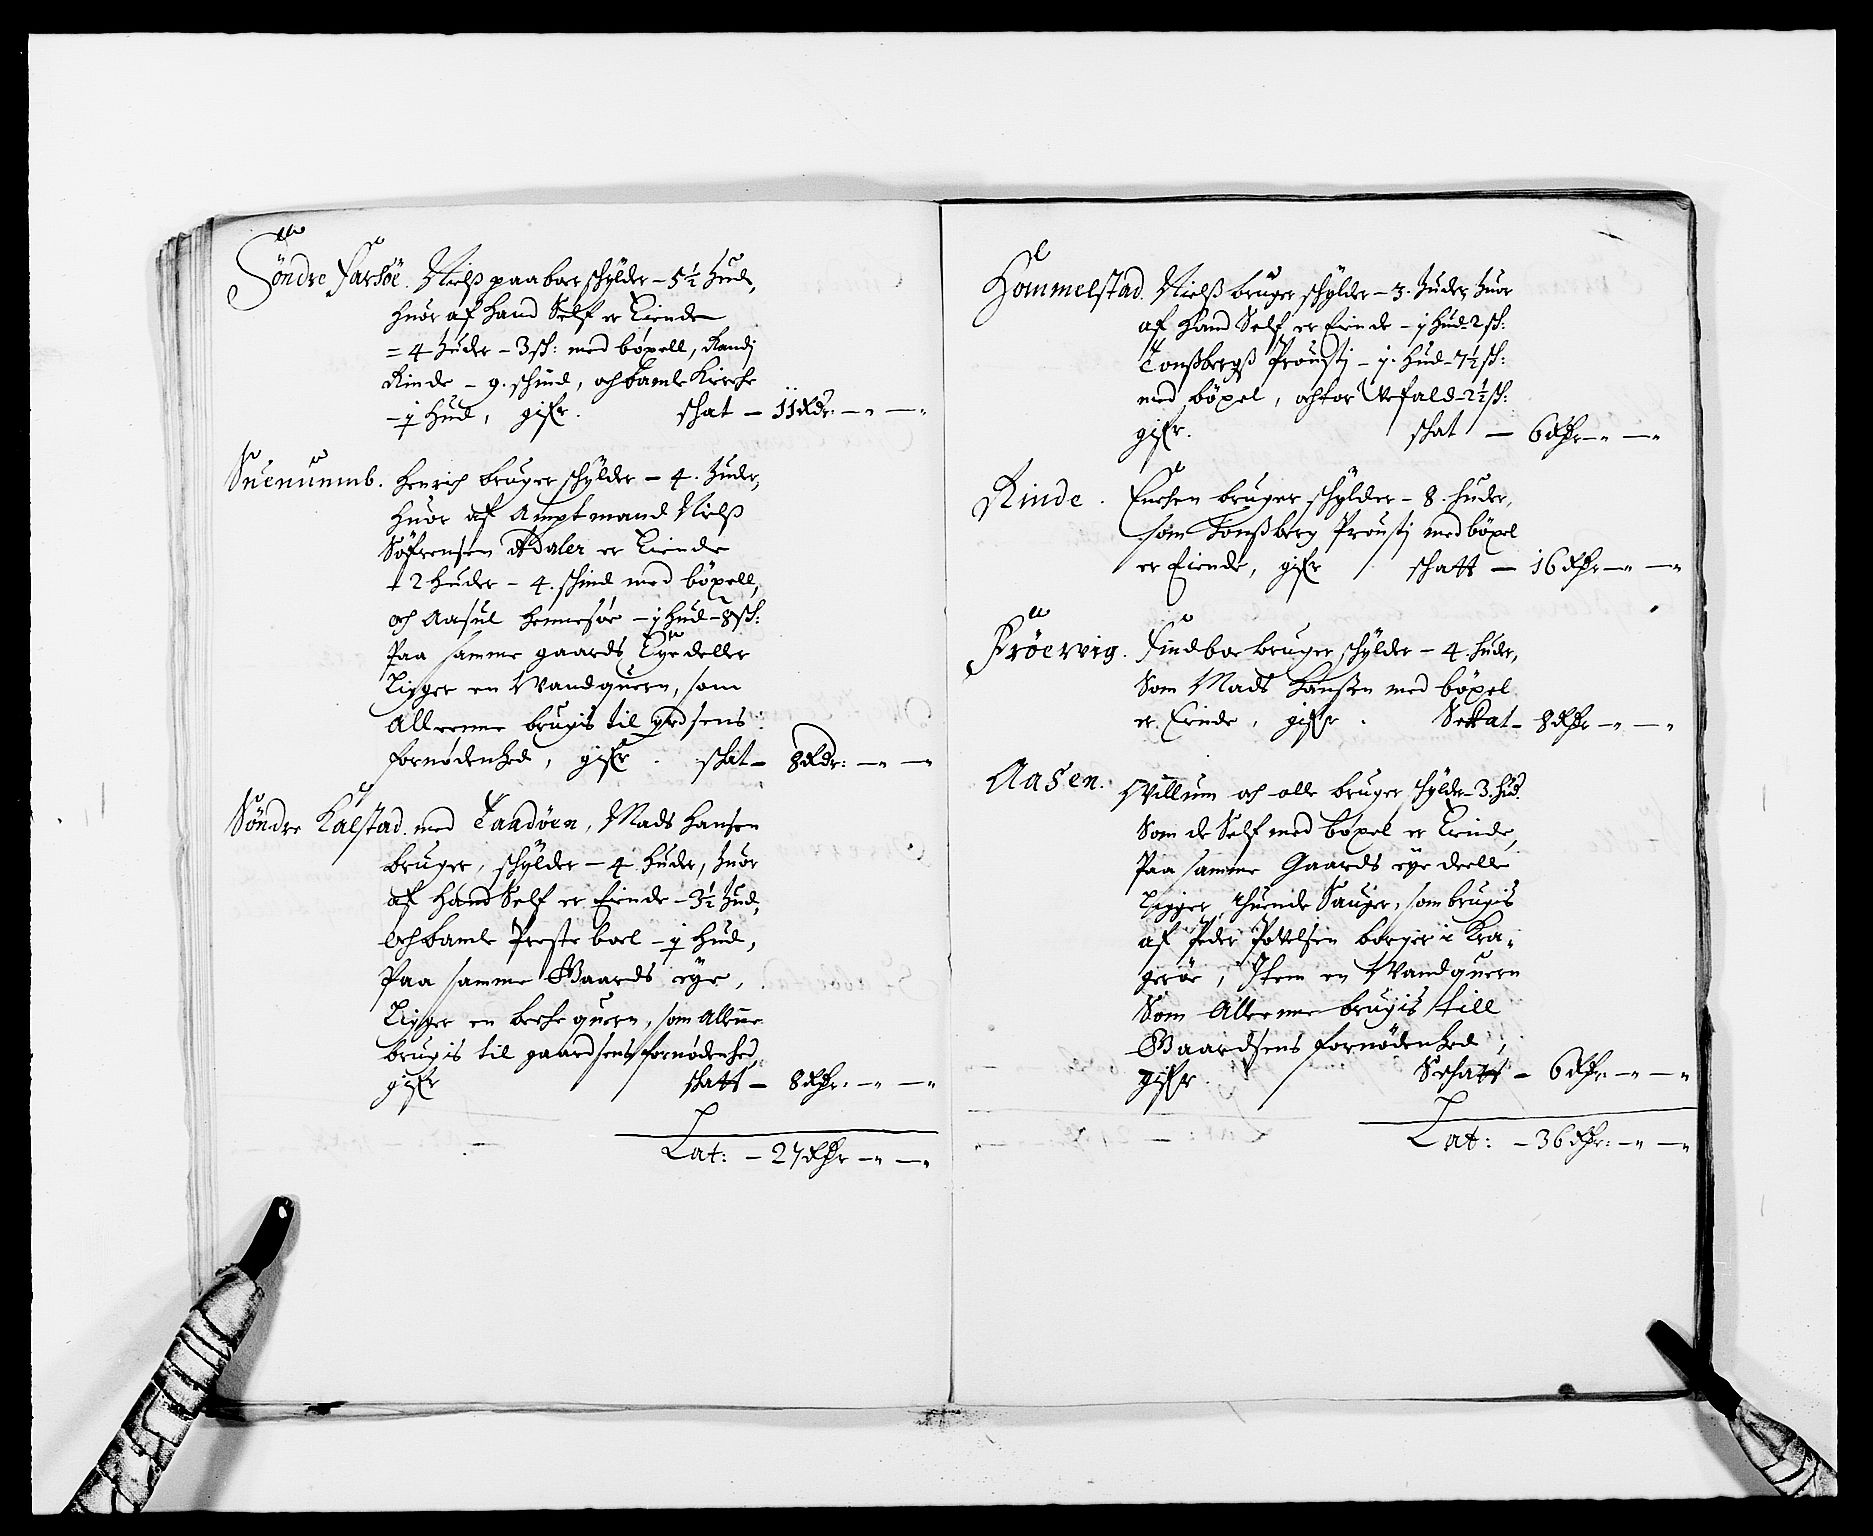 Söndre Farsöe. Nielß paaboer schylder – 5½ Hud,
huor af hand Self er Eiende
= 4 huder – 3 sk: med böxell, Randj
Rinde – 9. schind, och bamle Kirche
– j Hud, gifr. schat – 11 Rdr: – „ – „
Suenumb. Henrich bruger schylder – 4. huder,
huor af Amptmand Nielß
Söfrensen Adaler er Eiende
+ 2 Huder – 4. schind med böxell,
och Aasul Hennesöe – j Hud – 8 sk:
Paa samme gaards Eyedeller
Ligger en Wandquern, som
Alleene brugis til grdsens
fornödenhed, gifr. schat – 8 Rdr: – „ – „
Söndre Kalstad. med Taadöen, Mads Hansen
bruger, schylder – 4 huder, huor
af hand Self er Eiende – 3½ Hud,
och bamle Preste boel – ½ Hud,
Paa samme Gaards eye,
Ligger en beche quern, som Allene
brugis til gaardsens fornödenhed,
gifr schatt – 8 Rdr: – „ – „
Lat: – 27 Rdr – „ – „
Hommelstad. Nielß bruger schylder – 3. huder, huor
af hand Self er Eiende – j Hud – 2 sk:
Tonßbergß Proustj – j. Hud – 7½ sk:
med böxel, och for – 2½ sk:
gifr. schat – 6 Rdr – „ – „
Rinde. Euchen bruger schylder – 8. huder,
som Tonßberg Proustj med böxel
er Eiende, gifr schatt – 16 Rdr – „ – „
Fröervig. Findboe bruger schylder – 4. huder,
Som Mads Hanßen med böxel
er Eiende, gifr. Schat – 8 Rdr – „ – „
Aasen. Willum och olle bruger schylder 3. Hud.
Som de Self med böxel er Eiende,
Paa samme Gaards eye deelle
Ligger thuende Sauger, som brugis
af Peder Povelsen borger i Kra-
geröe, Item en Wandquern
Som Alleene brugis till
Gaardsens fornödenhed,
gifr. Schatt – 6 Rdr – „ – „
Lat: – 36 Rdr: – „ – „